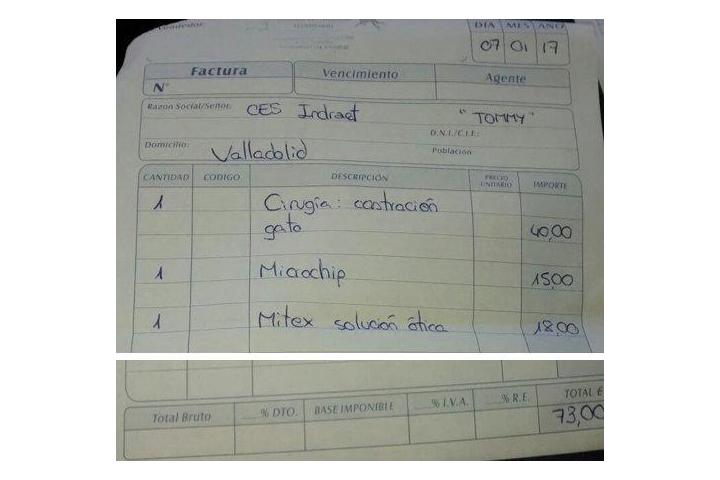 DIA MES AÑO
07 01 17
Factura Vencimiento Agente
Nº
Razón Social/Señor: CES Indract "TOMMY"
D.N.I./C.I.F.:
Domicilio: Valladolid Población:
CANTIDAD CODIGO DESCRIPCIÓN PRECIO UNITARIO IMPORTE
1 Cirugía: castración
gato 40,00
1 Microchip 15,00
1 Mitex solución ótica 18,00
Total Bruto % DTO. BASE IMPONIBLE % I.V.A. % R.E. TOTAL €
73,00